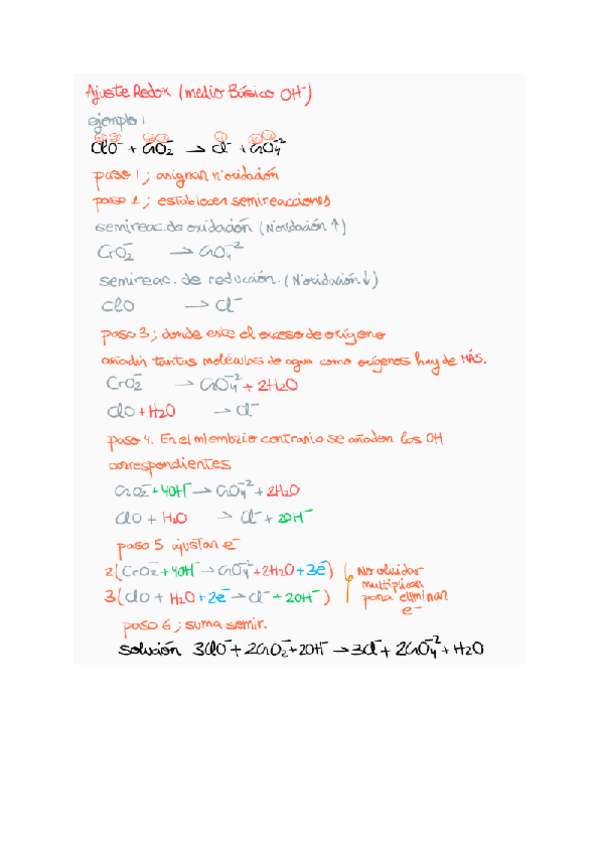 Ajuste Redox (medio Básico OH⁻)
ejemplo 1
ClO⁻ + CrO₂⁻ → Cl⁻ + CrO₄⁻²
paso 1; asignar nºoxidación
paso 2; establecer semireacciones
semireac. de oxidación (Nºoxidación ↑)
CrO₂⁻ → CrO₄⁻²
semireac. de reducción. (Nºoxidación ↓)
ClO → Cl⁻
paso 3; donde este el exceso de oxígeno
añadir tantas moléculas de agua como oxígenos hay de MÁS.
CrO₂⁻ → CrO₄⁻² + 2H₂O
ClO + H₂O → Cl⁻
paso 4. En el miembrio contrario se añaden los OH
correspondientes
CrO₂⁻ + 4OH⁻ → CrO₄⁻² + 2H₂O
ClO + H₂O → Cl⁻ + 2OH⁻
paso 5 ajustar e⁻
2(CrO₂⁻ + 4OH⁻ → CrO₄⁻² + 2H₂O + 3e⁻)
3(ClO + H₂O + 2e⁻ → Cl⁻ + 2OH⁻)
No olvidar
multiplicar
para eliminar
e⁻
paso 6; suma semir.
solución 3ClO⁻ + 2CrO₂⁻ + 2OH⁻ → 3Cl⁻ + 2CrO₄⁻² + H₂O